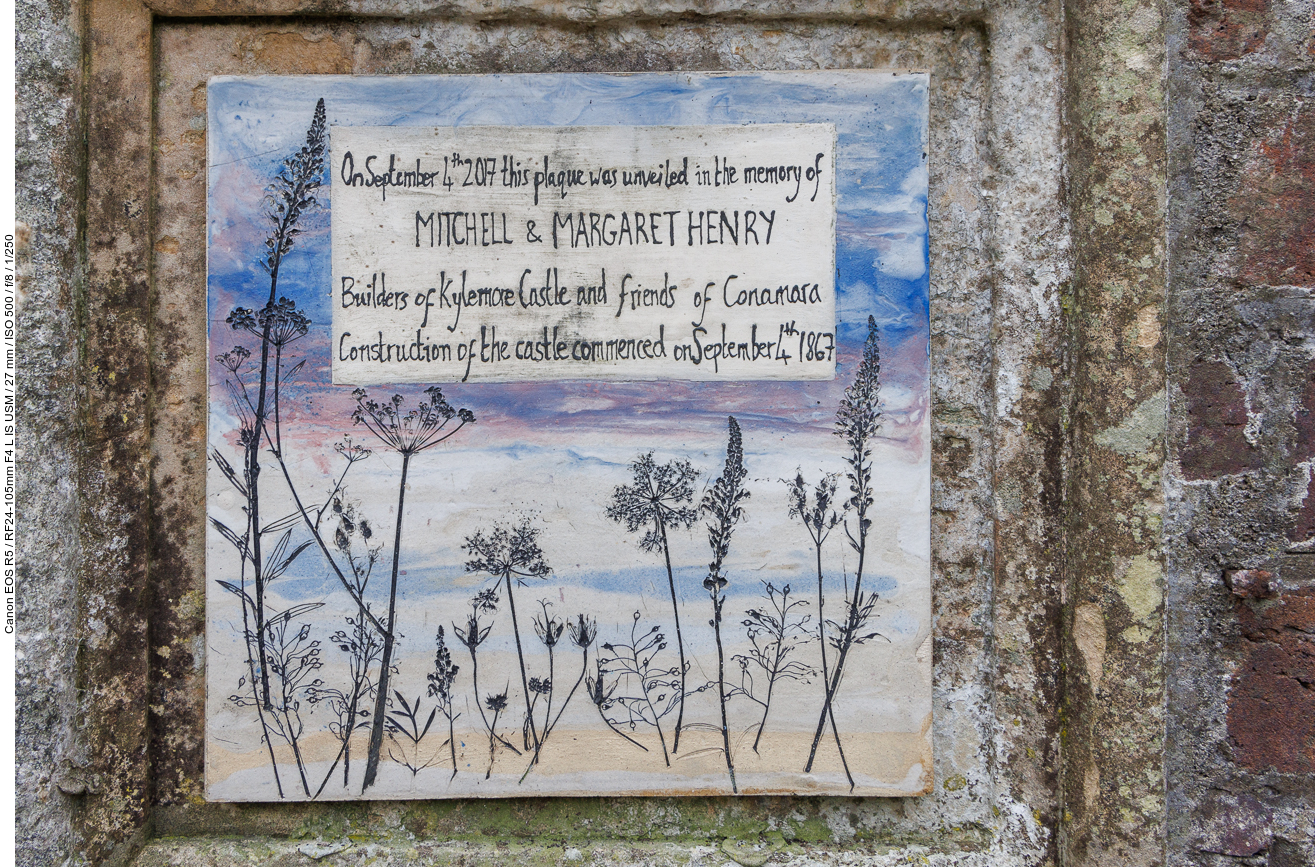 On September 4th 2017 this plaque was unveiled in the memory of
MITCHELL & MARGARET HENRY
Builders of Kylemore Castle and friends of Conamara
Construction of the castle commenced on September 4th 1867
Canon EOS R5 / RF24-105mm F4 L IS USM / 27 mm / ISO 500 / f/8 / 1/250